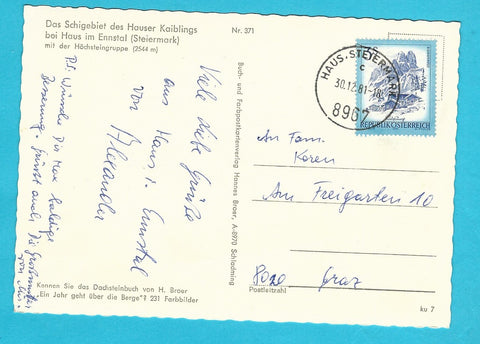 Das Schigebiet des Hauser Kaiblings
bei Haus im Ennstal (Steiermark)
mit der Höchsteingruppe (2544 m)
Nr. 371
P.S. Wünsche Dir Max baldige
Besserung. Grüsst auch die Großmutter
von mir.
Viele liebe Grüße
aus Haus i. Ennstal
von
Alexander
Kennen Sie das Dachsteinbuch von H. Broer
"Ein Jahr geht über die Berge"? 231 Farbbilder
Buch- und Farbpostkartenverlag Hannes Broer, A-8970 Schladming
HAUS, STEIERMARK
c
30.12.81-18
8967
REPUBLIK ÖSTERREICH
An Fam.
Koren
Am Freigarten 10
8020 Graz
Postleitzahl
ku 7